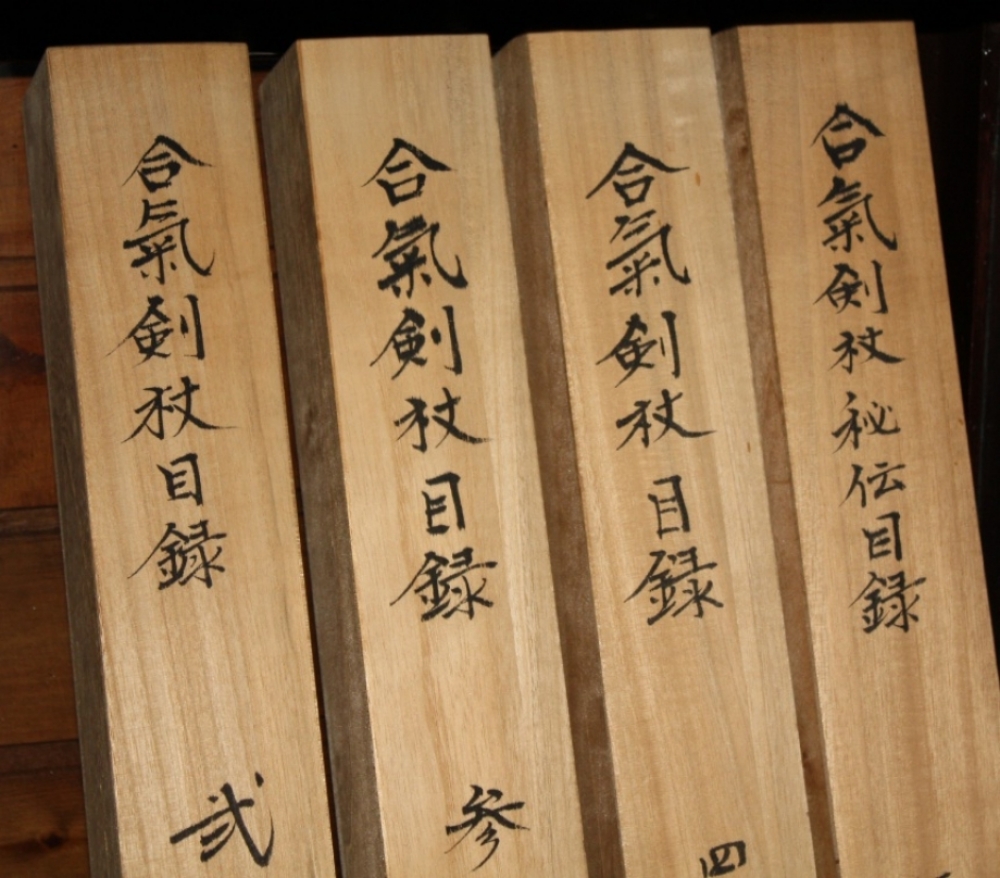 合氣剣杖目録
弐
合氣剣杖目録
参
合氣剣杖目録
四
合氣剣杖秘伝目録